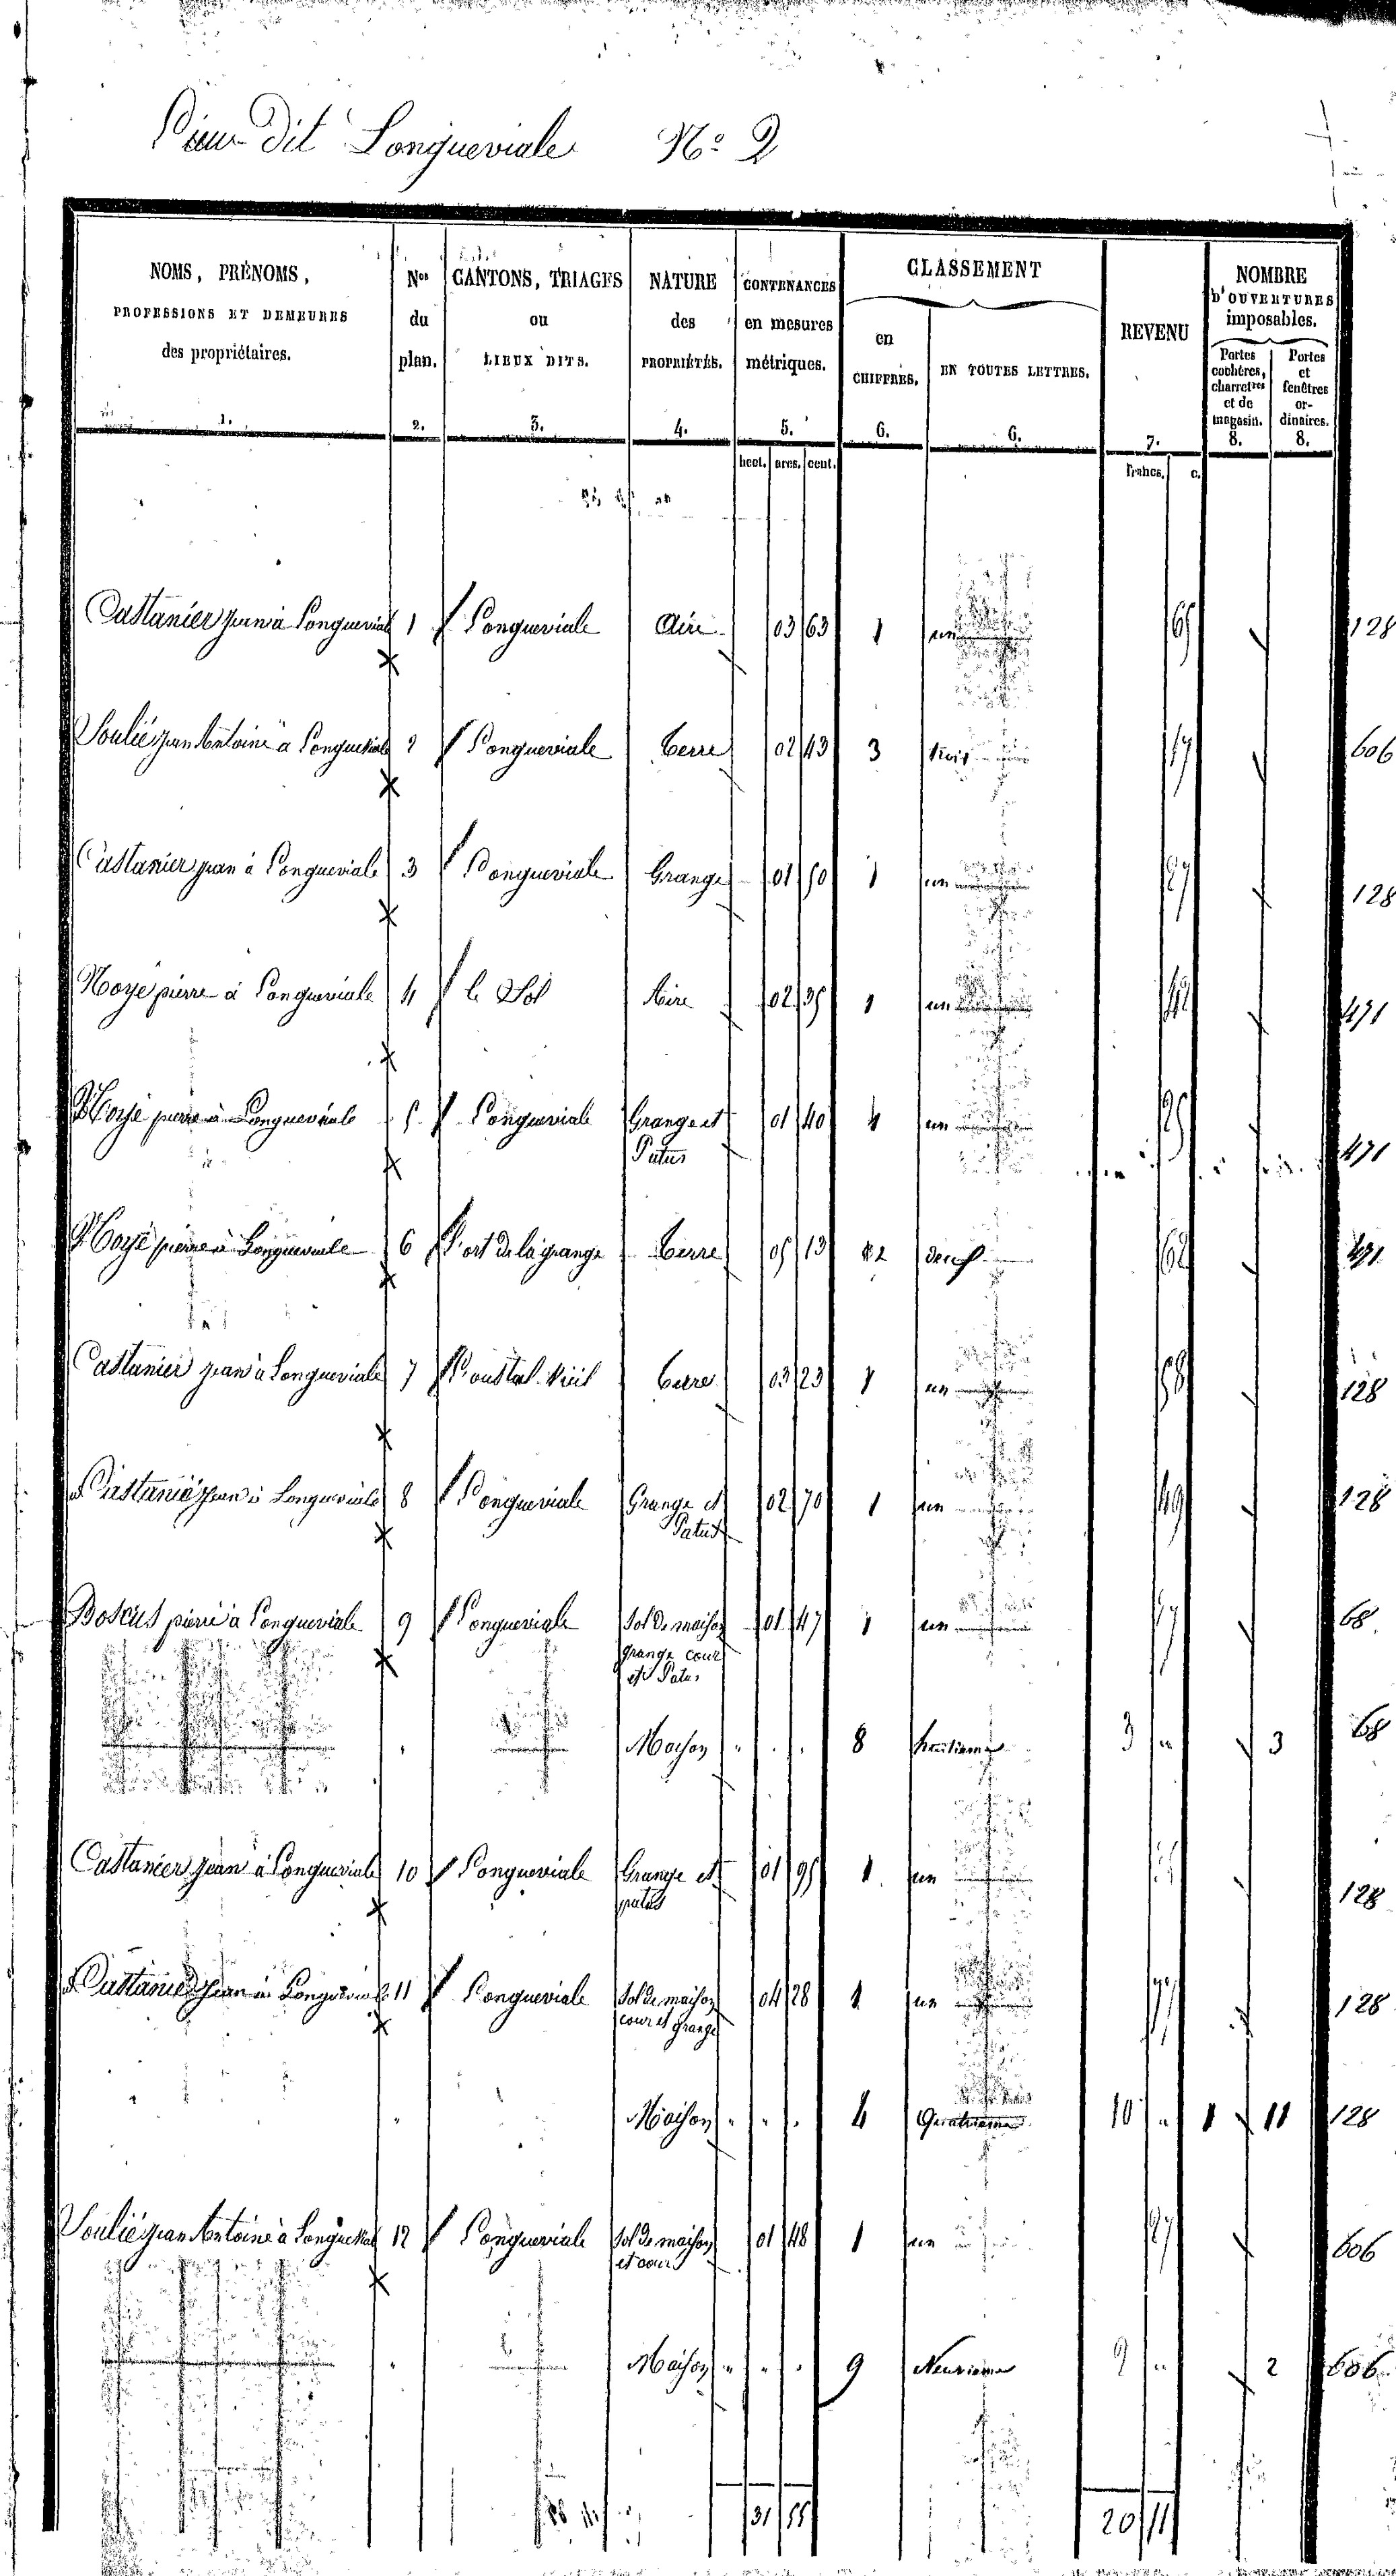 Lieu dit Longueviale N° 2
NOMS, PRÉNOMS, PROFESSIONS ET DEMEURES des propriétaires. 1.
Nos du plan. 2.
CANTONS, TRIAGES ou LIEUX DITS. 3.
NATURE des PROPRIÉTÉS. 4.
CONTENANCES en mesures métriques. 5.
CLASSEMENT
en CHIFFRES. 6.
EN TOUTES LETTRES. 6.
REVENU 7.
NOMBRE D'OUVERTURES imposables.
Portes cochères, charretres et de magasin. 8.
Portes et fenêtres ordinaires. 8.
hect. ares. cent. francs. c.
Castanier jean à Longueviale 1 Longueviale Aire 03 63 1 un 128
Soulié jean Antoine à Longueviale 2 Longueviale terre 02 43 3 trois 17 606
Castanier jean à Longueviale 3 Longueviale Grange 01 50 1 un 27 128
Noyé pierre à Longueviale 4 le Sol Aire 02 35 1 un 42 471
Noyé pierre à Longueviale 5 Longueviale Grange et 01 40 1 un 25 471
Patus
Noyé pierre à Longueviale 6 L'ort de la grange terre 05 13 2 deux 62 471
Castanier jean à Longueviale 7 L'oustal viel terre 03 23 1 un 58 128
Castanié jean à Longueviale 8 Longueviale Grange et 02 70 1 un 49 128
Patus
Boscus pierre à Longueviale 9 Longueviale Sol de maison 01 47 1 un 27 68
grange cour
et Patus
Maison 8 huitième 3 " 3 68
Castanier jean à Longueviale 10 Longueviale Grange et 01 95 1 un 128
patus
Castanier jean à Longueviale 11 Longueviale Sol de maison 04 28 1 un 77 128
cour et grange
Maison 4 Quatrième 10 " 1 11 128
Soulié jean Antoine à Longueviale 12 Longueviale Sol de maison 01 48 1 un 27 606
et cour
Maison 9 Neuvième " 2 606
31 55 20 11